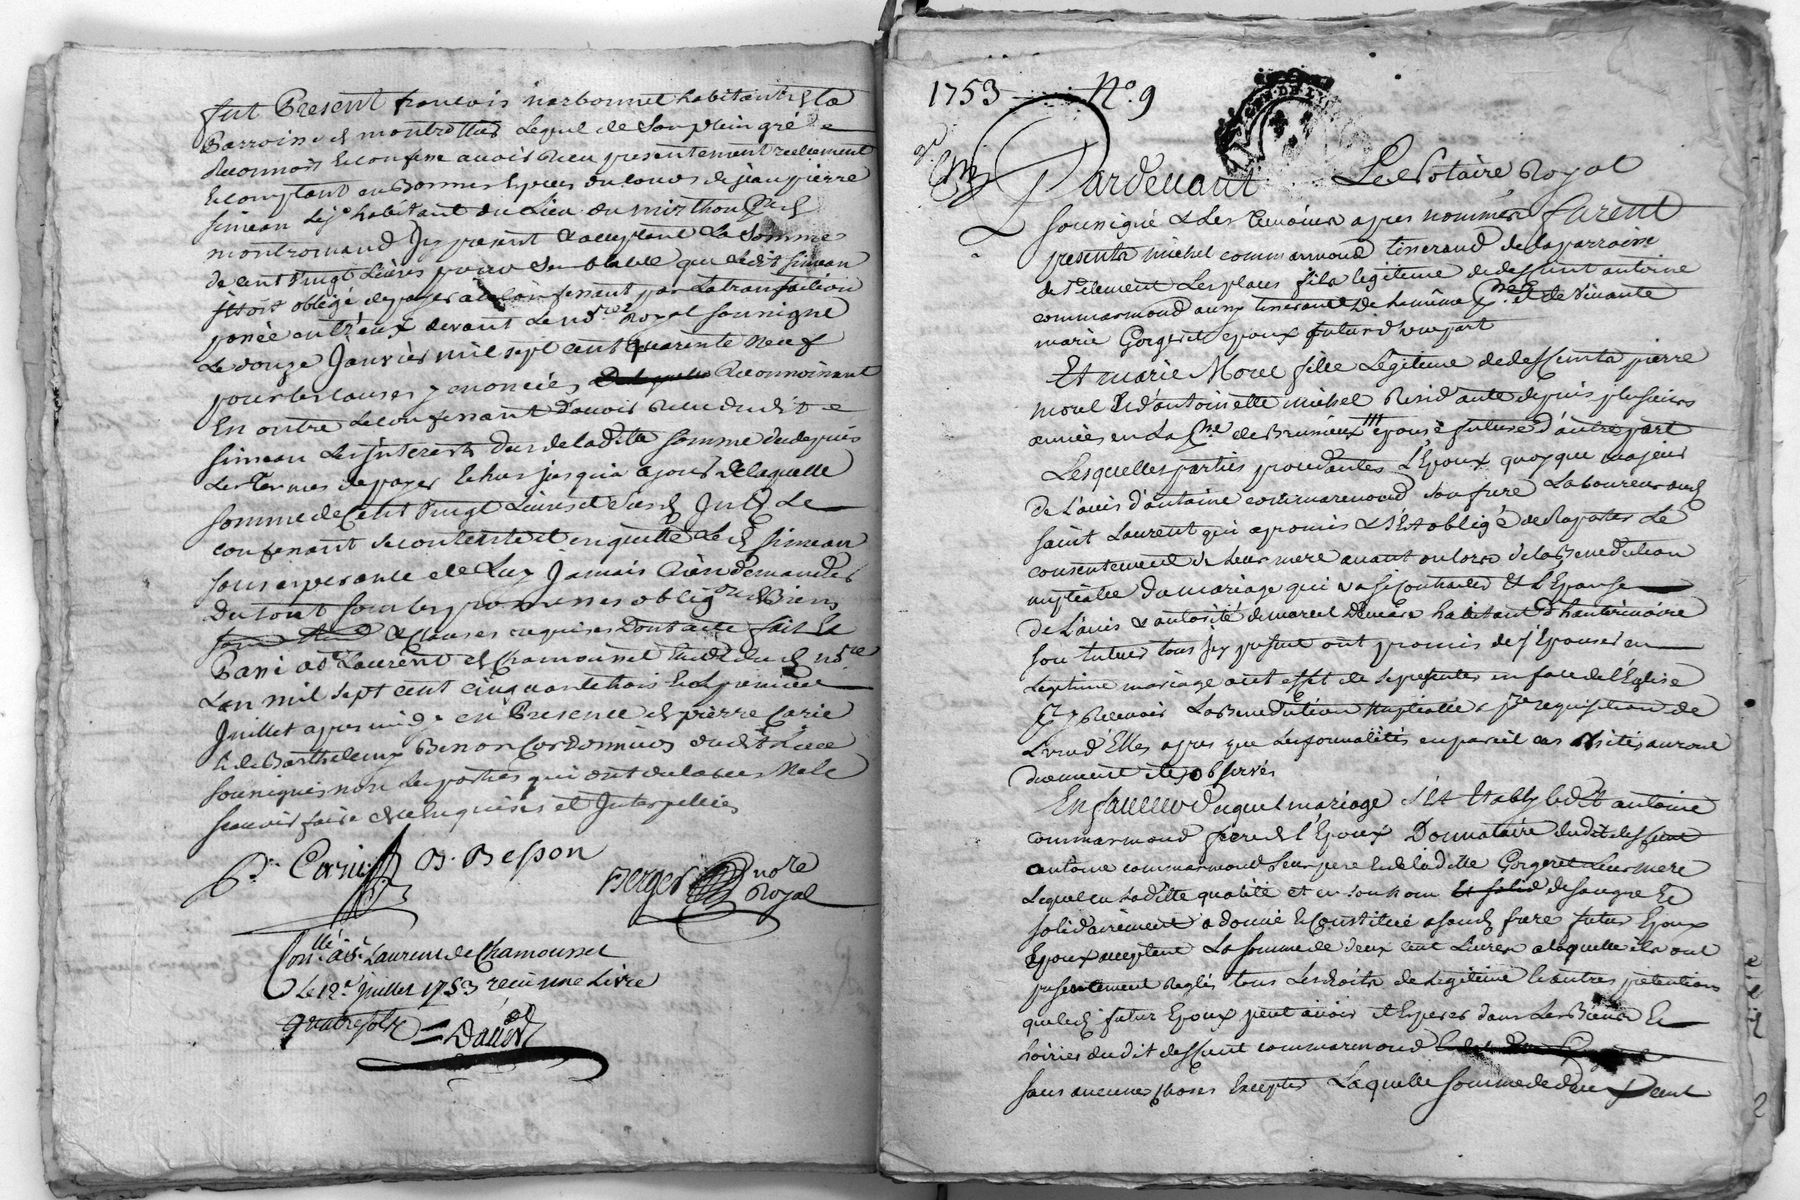 fut Present francois narbonnet habitant de la
Parroisse de montrottier Lequel de son plein gré
Reconnoit & confesse avoir Receu presentement reellement
& comptant en Bonnes Especes du cours de jean pierre
simean habitant du Lieu du
montromand Icy present & acceptant La somme
de cent vingt Livres pour semblable que ledit simean
s'étoit obligé de payer au confessant par La transaction
passée entr'eux devant Le no.re Royal soussigné
Le douze Janvier mil sept cent quarente neuf
pour les causes y enoncées Reconnoissant
En outre Le confessant d'avoir Receu dudit
simean Les Interests dus de laditte somme du depuis
Les Termes de payer Echus jusqu'a ce jour de laquelle
somme de Cent vingt Livres et Le
confessant se contente et en quitte Le d. simean
sous esperance de Luy Jamais Rien demander
Du tout sous les promesses oblig.on de Biens
& clauses requises Dont acte fait &
Passé a st Laurent de Chamousset Etude du d. no.re
L'an mil sept cent cinquante trois & Le premier
Juillet apres midy en Presence de pierre Carie
& de Barthelemy Besson Cordonniers dudit Lieu
soussignés non les parties qui ont declaré ne le
sçavoir faire de ce Enquises et Interpellées
P. Carie B. Besson
Berger no.re
Royal
Con.llé a st Laurent de Chamousset
Le 12.e juillet 1753 receu une Livre
quatre sols
1753 N.º 9
GEN. DE LY
Pardevant Le Notaire Royal
soussigné & Les temoins apres nommés furent
presents michel commarmond tisserand de la parroisse
de st clement Les places fils legitime de deffunt antoine
commarmond aussy tisserand De la même p.sse et de vivante
marie Gorgeret epoux futur d'une part
Et marie Morel fille Legitime de deffunts pierre
morel & d'antoinette michel Residante depuis plusieurs
années en La p.sse de Brussieux epouse future d'autre part
Lesquelles parties procedantes L'Epoux quoyque majeur
De L'avis d'antoine commarmond son frere Laboureur aud.
saint Laurent qui a promis & s'Est obligé de Raporter Le
consentement de Leur mere avant ou lors de la Benediction
nuptialle du mariage & L'Epouse
De L'avis & autorité de marcel habitant d'hauterivoire
son tuteur tous Icy present ont promis de s'Epouser en
Legitime mariage a cet effet de se presenter en face de l'Eglise
& y Recevoir La Benediction Nuptialle a j.re requisition de
L'un d'Elles apres que Les formalités en pareil cas usités auront
duement été observés
En faveur duquel mariage s'Est Etably ledit antoine
commarmond frere de l'Epoux Donnataire dudit deffunt
antoine commarmond Leur pere & de laditte Gorgeret Leur mere
Lequel en laditte qualité et en son nom de son gré &
solidairement a donné & constitué a son d. frere futur Epoux
Epoux acceptant La somme de deux cent Livres a laquelle ils ont
presentement Reglés tous Les droits de Legitime & autres pretentions
que le d. futur Epoux peut avoir et Esperer dans Les Biens &
hoiries dudit deffunt commarmond
sans aucunes choses Excepter Laquelle somme de deux cent
2